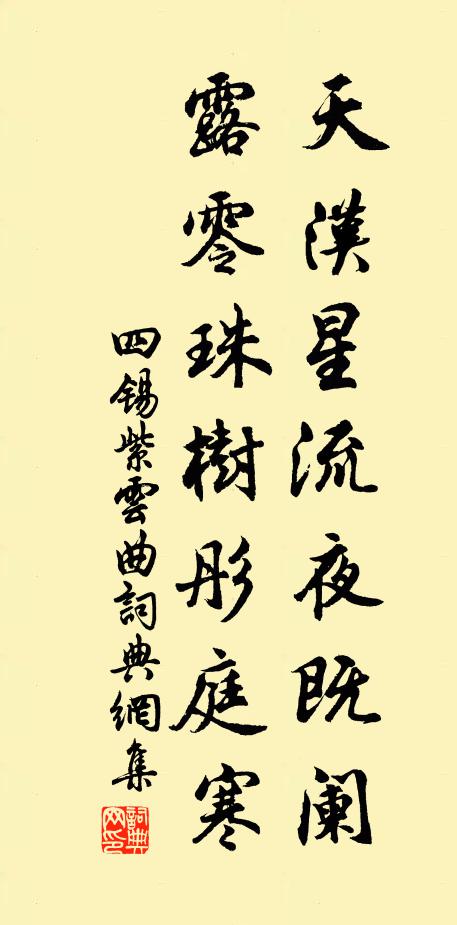 天漢星流夜既阑
露零珠樹彤庭寒
四錫紫雲曲詞典網集
詞典网印